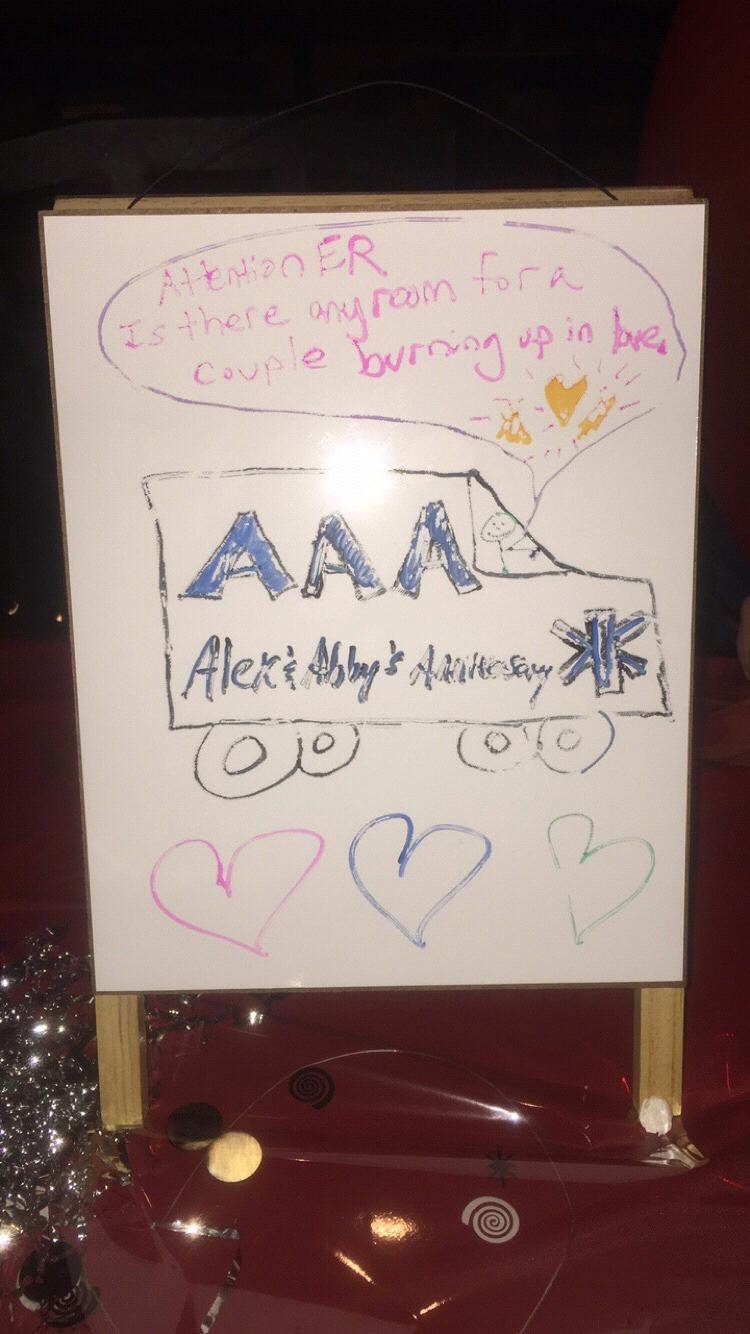 Attention ER
Is there any room for a
couple burning up in love.
AAA
Alex & Abby's Anniversary